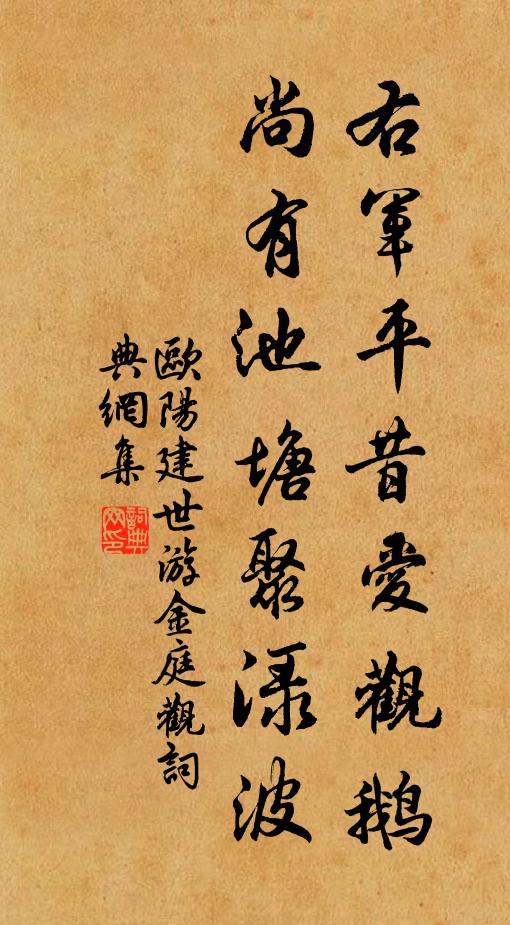 右軍平昔愛觀鵝
尚有池塘聚渌波
歐陽建世游金庭觀詞
典網集
詞典
網印